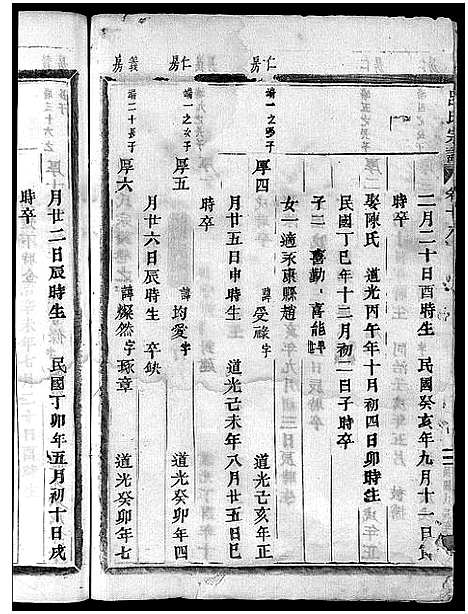 呂氏宗譜
二月二十日酉時生　民國癸亥年九月十一日
娶陳氏　道光丙午年十月初四日卯時生
民國丁巳年十二月初二日子時卒
子二　喜勤　喜能
女一　適永康縣趙
仁房
端一之四子
厚四　諱愛祿　字　道光己亥年正
月廿五日申時生　道光己未年八月廿五日巳
時卒
仁房
端一之五子
厚五　諱均愛　字　道光癸卯年四
月廿六日辰時生　卒缺
義房
端二十長子
厚六　諱燦然　字琢章　道光癸卯年七
月廿二日辰時生　民國丁卯年五月初十日戌
時卒